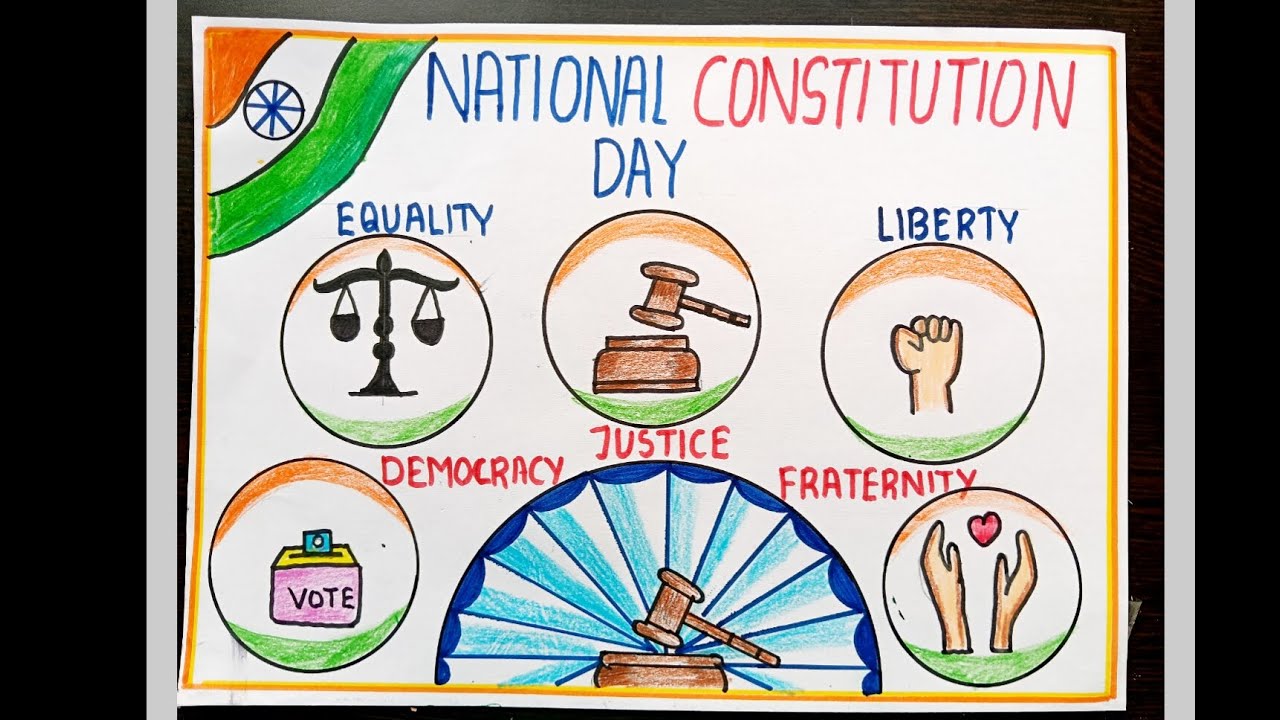 NATIONAL CONSTITUTION
DAY
EQUALITY
LIBERTY
JUSTICE
DEMOCRACY
FRATERNITY
VOTE